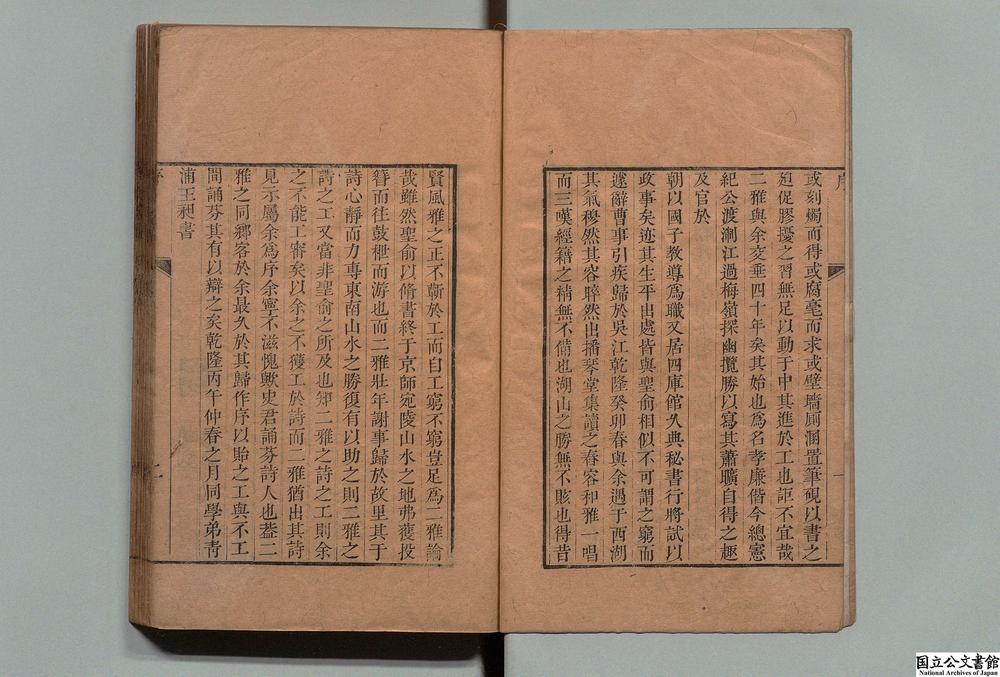 序
或刻燭而得或腐毫而求或壁墻厠溷置筆硯以書之
廹促膠擾之習無足以動于中其進於工也詎不宜哉
二雅與余交垂四十年矣其始也爲名孝廉偕今總憲
紀公渡淛江過梅嶺探幽攬勝以寫其蕭曠自得之趣
及官於
朝以國子教導爲職又居四庫館久典秘書行將試以
政事矣迹其生平出處皆與聖俞相似不可謂之窮而
遽辭曹事引疾歸於吳江乾隆癸卯春與余遇于西湖
其氣穆然其容睟然出播琴堂集讀之春容和雅一唱
而三嘆經籍之精無不備也湖山之勝無不賅也得昔
一
賢風雅之正不蘄於工而自工窮不窮豈足爲二雅論
哉雖然聖俞以脩書終于京師宛陵山水之地弗獲投
簪而往鼓枻而游也而二雅壯年謝事歸於故里其于
詩心靜而力專東南山水之勝復有以助之則二雅之
詩之工又當非聖俞之所及也知二雅之詩之工則余
之不能工審矣以余之不獲工於詩而二雅猶出其詩
見示屬余爲序余寧不滋愧歟史君誦芬詩人也葢二
雅之同鄉客於余最久於其歸作序以貽之工與不工
間誦芬其有以辯之矣乾隆丙午仲春之月同學弟靑
浦王昶書
二
国立公文書館
National Archives of Japan